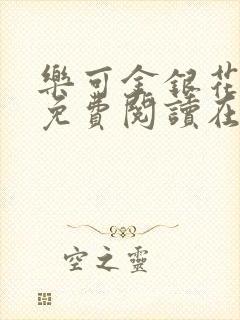 樂可金銀花
免費閱讀在
空之靈